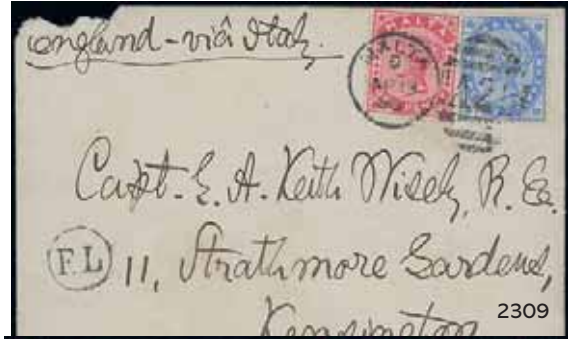 england - viâ Italy.
MALTA
MALTA
AP 13
Capt. E. A. Keith Wisely, R. Es.
F.L
11, Strathmore Gardens,
Kensington
2309